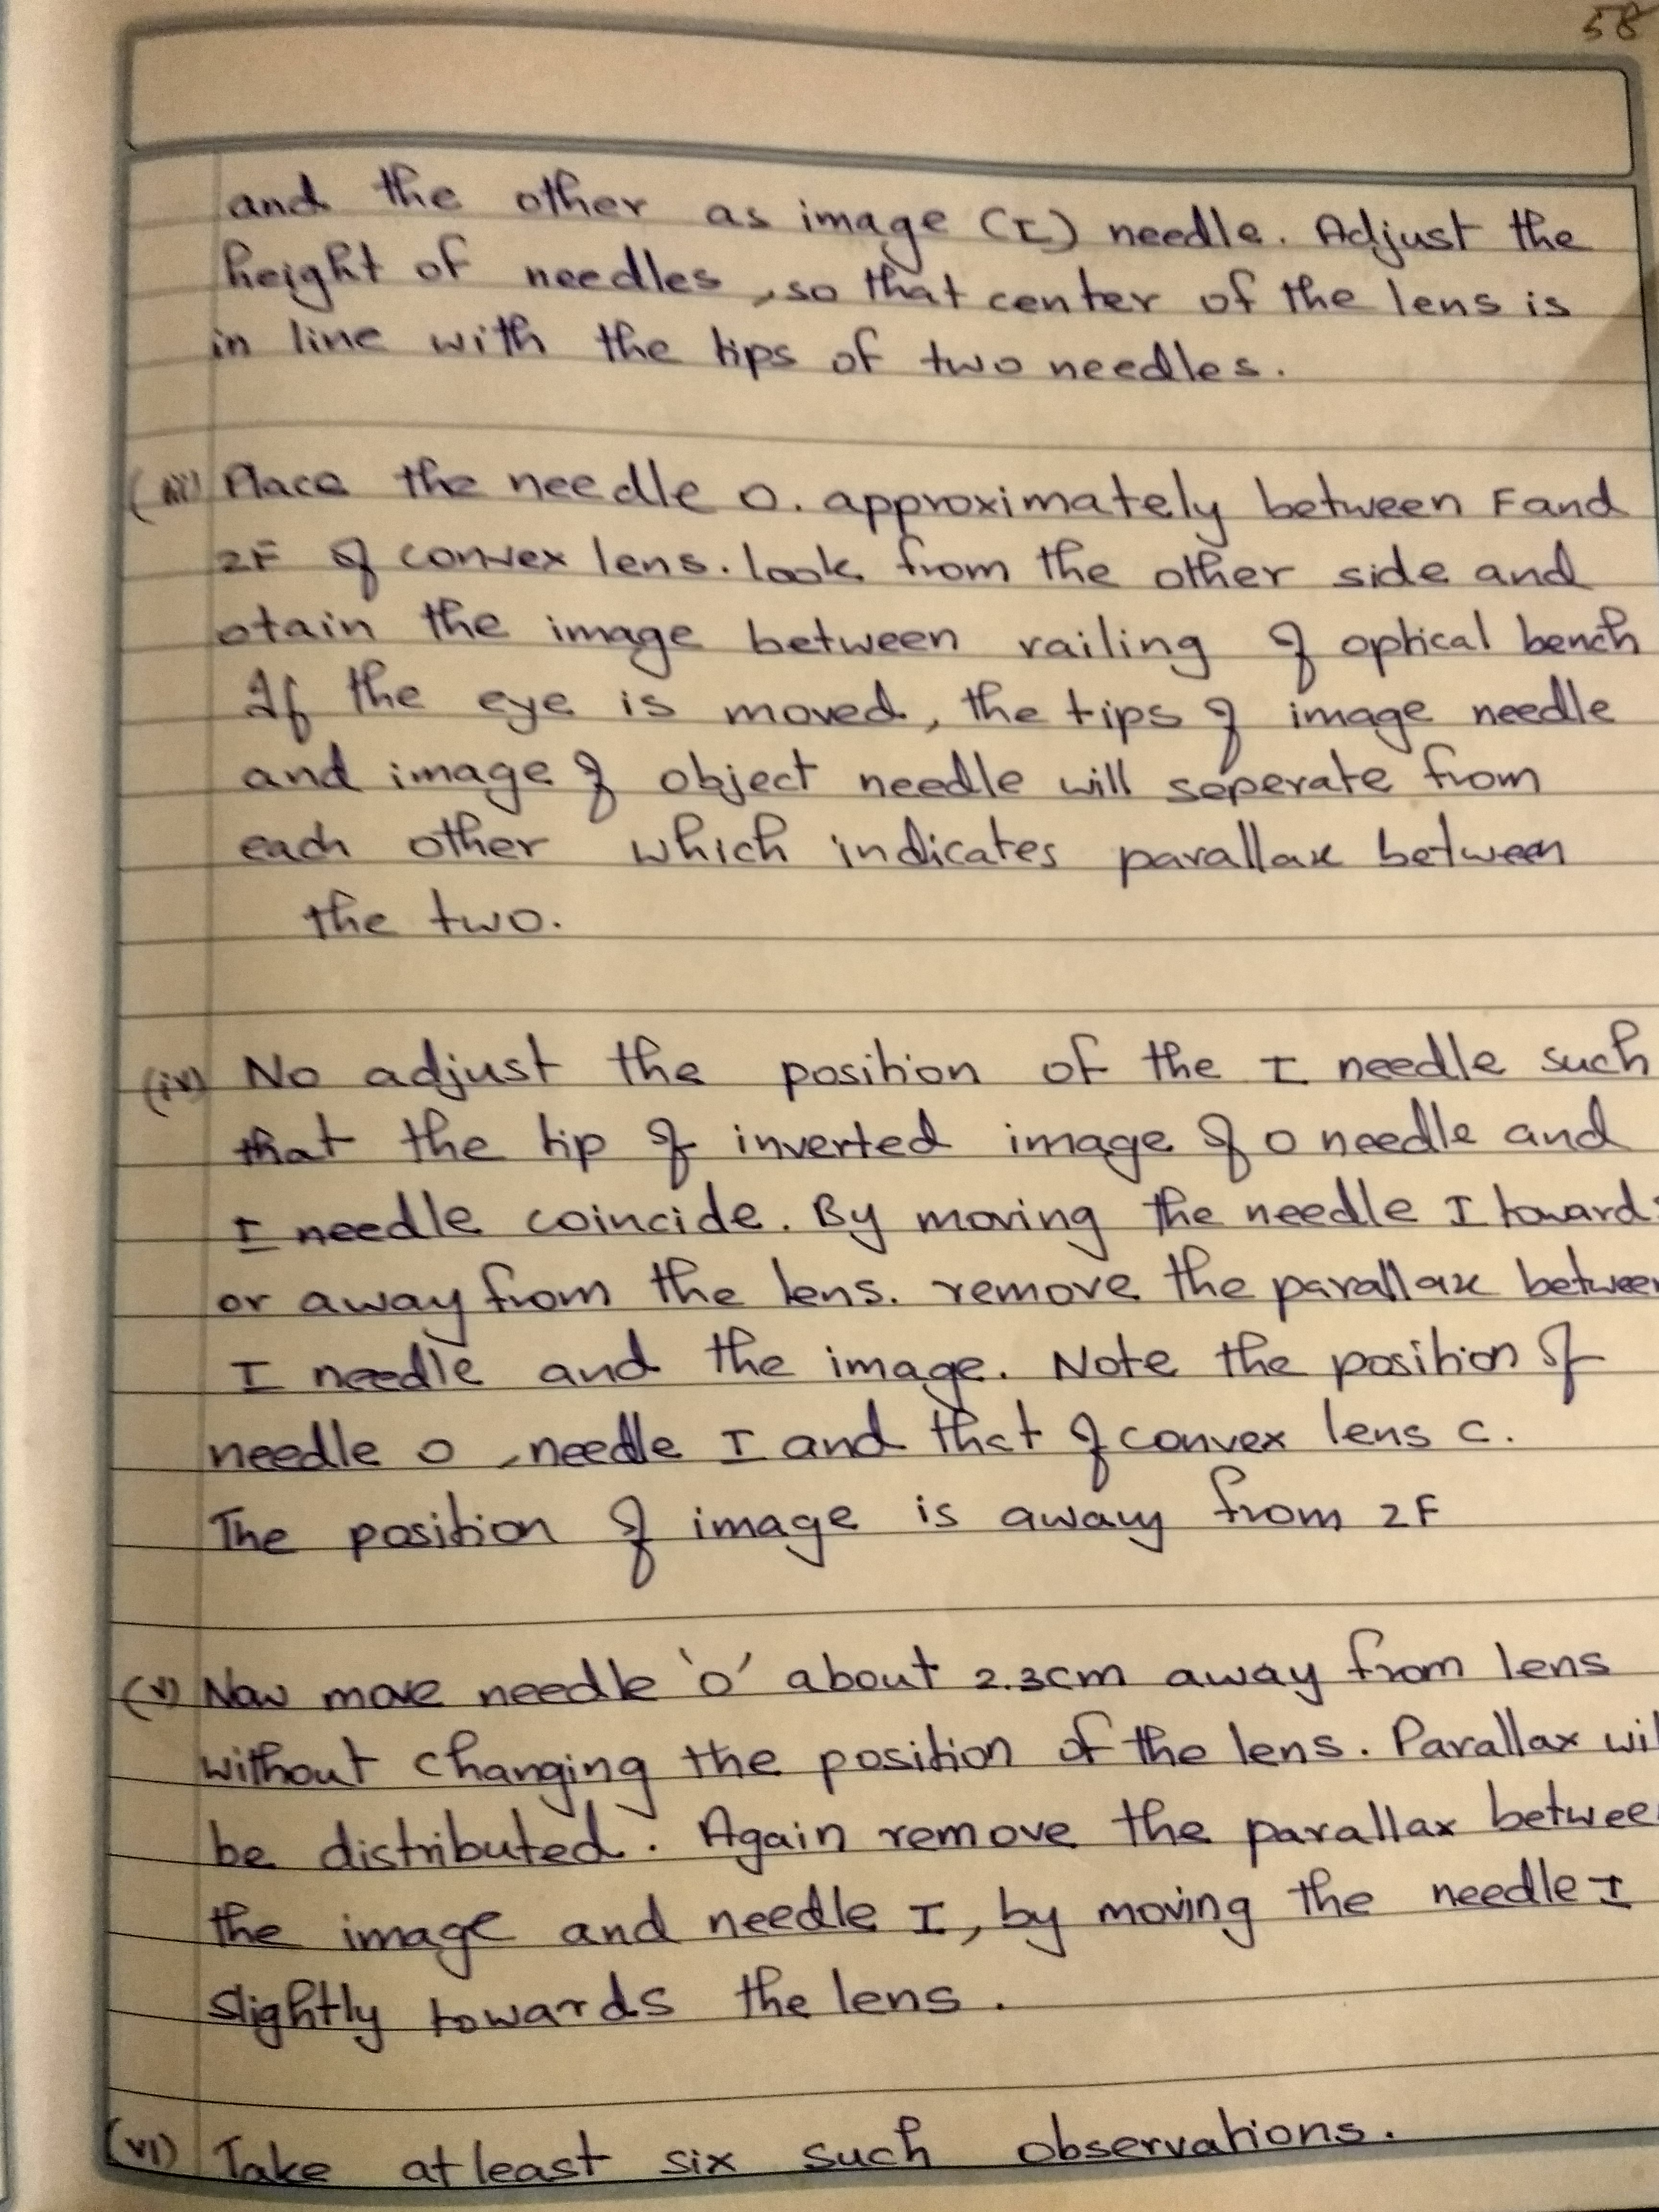 58
and the other as image (I) needle. Adjust the
height of needles, so that center of the lens is
in line with the tips of two needles.
(iii) Place the needle O. approximately between F and
2F of convex lens. look from the other side and
otain the image between railing of optical bench
If the eye is moved, the tips of image needle
and image of object needle will seperate from
each other which indicates parallax between
the two.
(iv) No adjust the position of the I needle such
that the tip of inverted image of O needle and
I needle coincide. By moving the needle I towards
or away from the lens. remove the parallax between
I needle and the image. Note the position of
needle O, needle I and that of convex lens C.
The position of image is away from 2F
(v) Now move needle 'O' about 2.3cm away from lens
without changing the position of the lens. Parallax wil
be distributed. Again remove the parallax betwee
the image and needle I, by moving the needle I
slightly towards the lens.
(vi) Take at least six such observations.